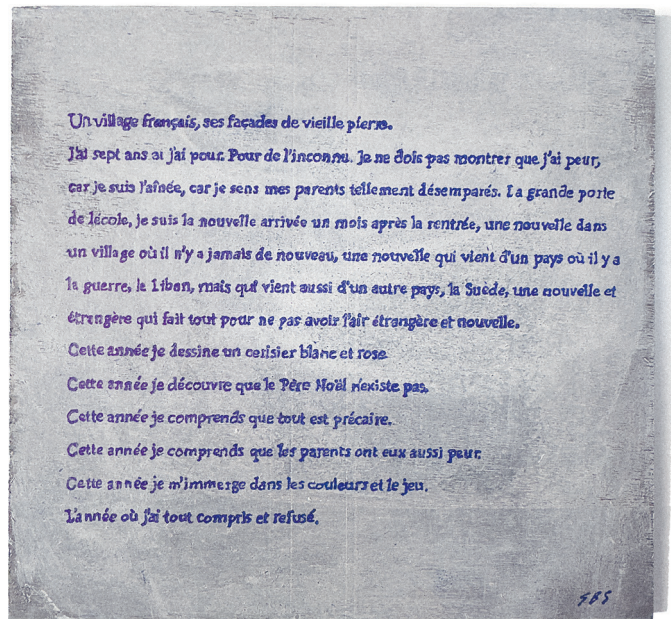 Un village français, ses façades de vieille pierre.
J'ai sept ans et j'ai peur. Peur de l'inconnu. Je ne dois pas montrer que j'ai peur,
car je suis l'aînée, car je sens mes parents tellement désemparés. La grande porte
de lécole, je suis la nouvelle arrivée un mois après la rentrée, une nouvelle dans
un village où il n'y a jamais de nouveau, une nouvelle qui vient d'un pays où il y a
la guerre, le Liban, mais qui vient aussi d'un autre pays, la Suède, une nouvelle et
étrangère qui fait tout pour ne pas avoir l'air étrangère et nouvelle.
Cette année je dessine un cerisier blanc et rose
Cette année je découvre que le Père Noël n'existe pas.
Cette année je comprends que tout est précaire.
Cette année je comprends que les parents ont eux aussi peur.
Cette année je m'immerge dans les couleurs et le jeu.
L'année où j'ai tout compris et refusé.
SBS